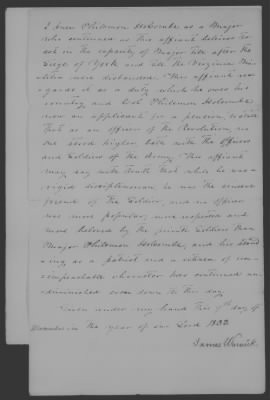 I knew Philemon Holcombe as a Major
who continued as this affiant believes to
act in the capacity of Major till after the
Siege of York and till the Virginia Mi-
litia were disbanded. This affiant re-
gards it as a duty which he owes his
country and Col Philemon Holcombe
now an applicant for a pension, to state
that as an officer of the Revolution, no
one stood higher both with the Officers
and Soldiers of the Army. This affiant
may say with truth that while he was a
rigid disciplinarian, he was the sincere
friend of the Soldier, and no officer
was more popular, more respected and
more beloved by the private Soldiers than
Major Philemon Holcombe, and his stand
ing as a patriot and a citizen of un-
impeachable character has continued un-
diminished even down to this day.
Given under my hand this 9th day of
in the year of our Lord 1832
James Warnick